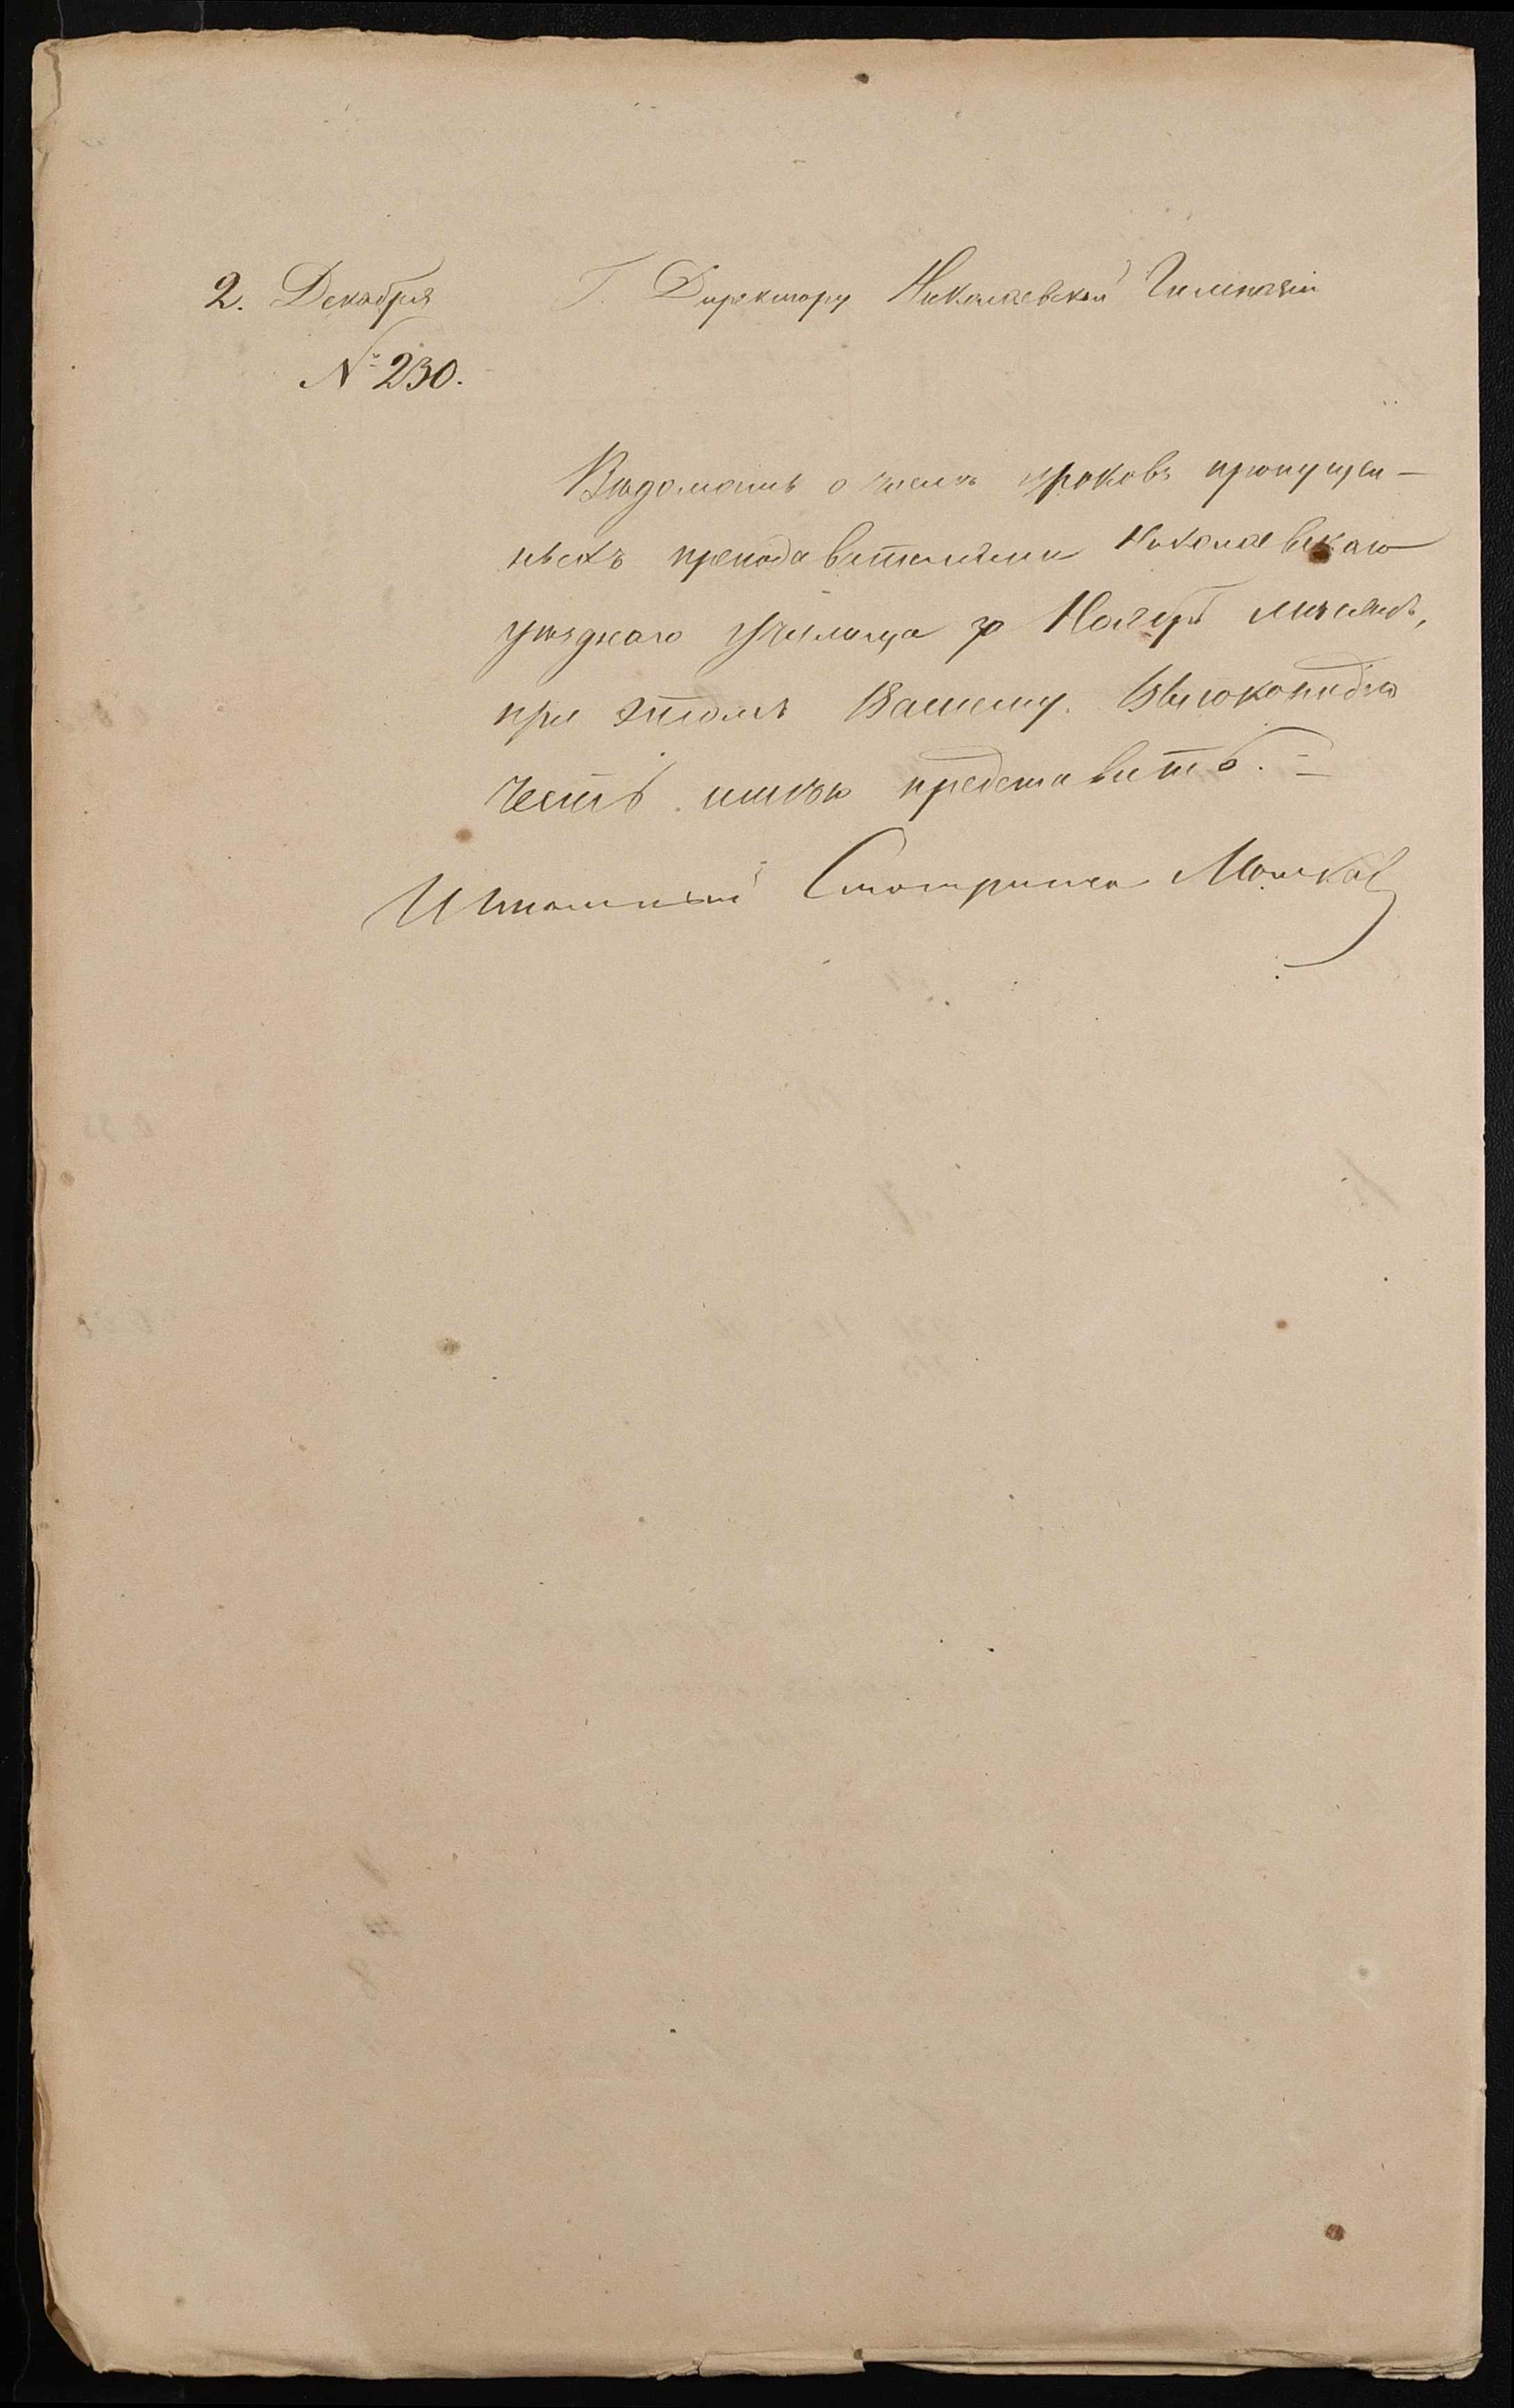 2. Декабря
Г. Директору Николаевской Гимназіи
№ 230.
Вѣдомость о числѣ уроковъ пропущен-
ныхъ преподавателями Николаевскаго
уѣзднаго училища за Ноябрь мѣсяцъ,
при этомъ Вашему Высокородію
честь имѣю представить. =
Штатный Смотритель